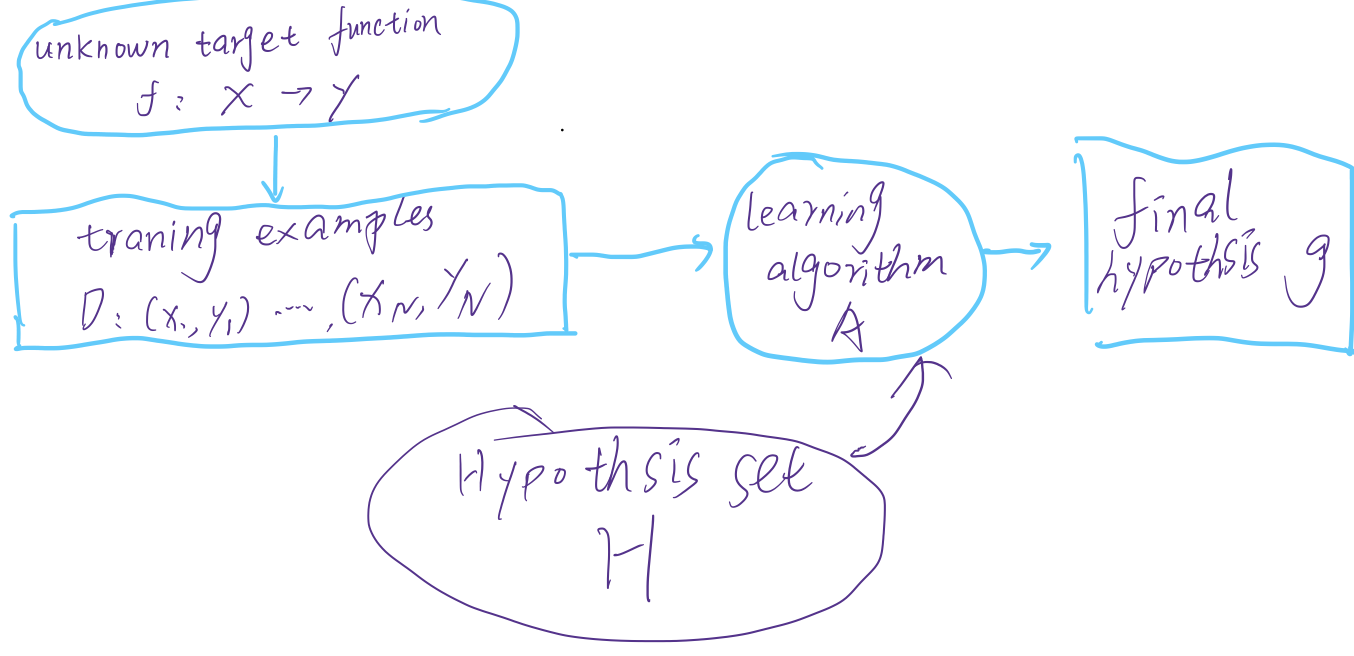 unknown target function
f: X → Y
traning examples
D: (x1, y1) ...., (XN, YN)
learning
algorithm
A
final
hypothsis g
Hypothsis set
H